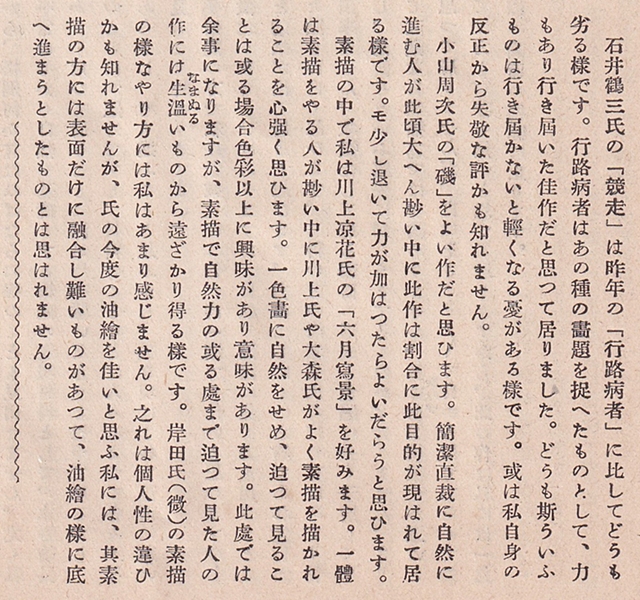 石井鶴三氏の「競走」は昨年の「行路病者」に比してどうも
劣る樣です。行路病者はあの種の畫題を捉へたものとして、力
もあり行き屆いた佳作だと思つて居りました。どうも斯ういふ
ものは行き屆かないと輕くなる憂がある樣です。或は私自身の
反正から失敬な評かも知れません。
小山周次氏の「磯」をよい作だと思ひます。簡潔直裁に自然に
進む人が此頃大へん尠い中に此作は割合に此目的が現はれて居
る樣です。モ少し退いて力が加はつたらよいだらうと思ひます。
素描の中で私は川上凉花氏の「六月寫景」を好みます。一體
は素描をやる人が尠い中に川上氏や大森氏がよく素描を描かれ
ることを心强く思ひます。一色畫に自然をせめ、迫つて見るこ
とは或る場合色彩以上に興味があり意味があります。此處では
余事になりますが、素描で自然力の或る處まで迫つて見た人の
作には生溫いものから遠ざかり得る樣です。岸田氏(微)の素描
なまぬる
の樣なやり方には私はあまり感じません。之れは個人性の違ひ
かも知れませんが、氏の今度の油繪を佳いと思ふ私には、其素
描の方には表面だけに融合し難いものがあつて、油繪の樣に底
へ進まうとしたものとは思はれません。